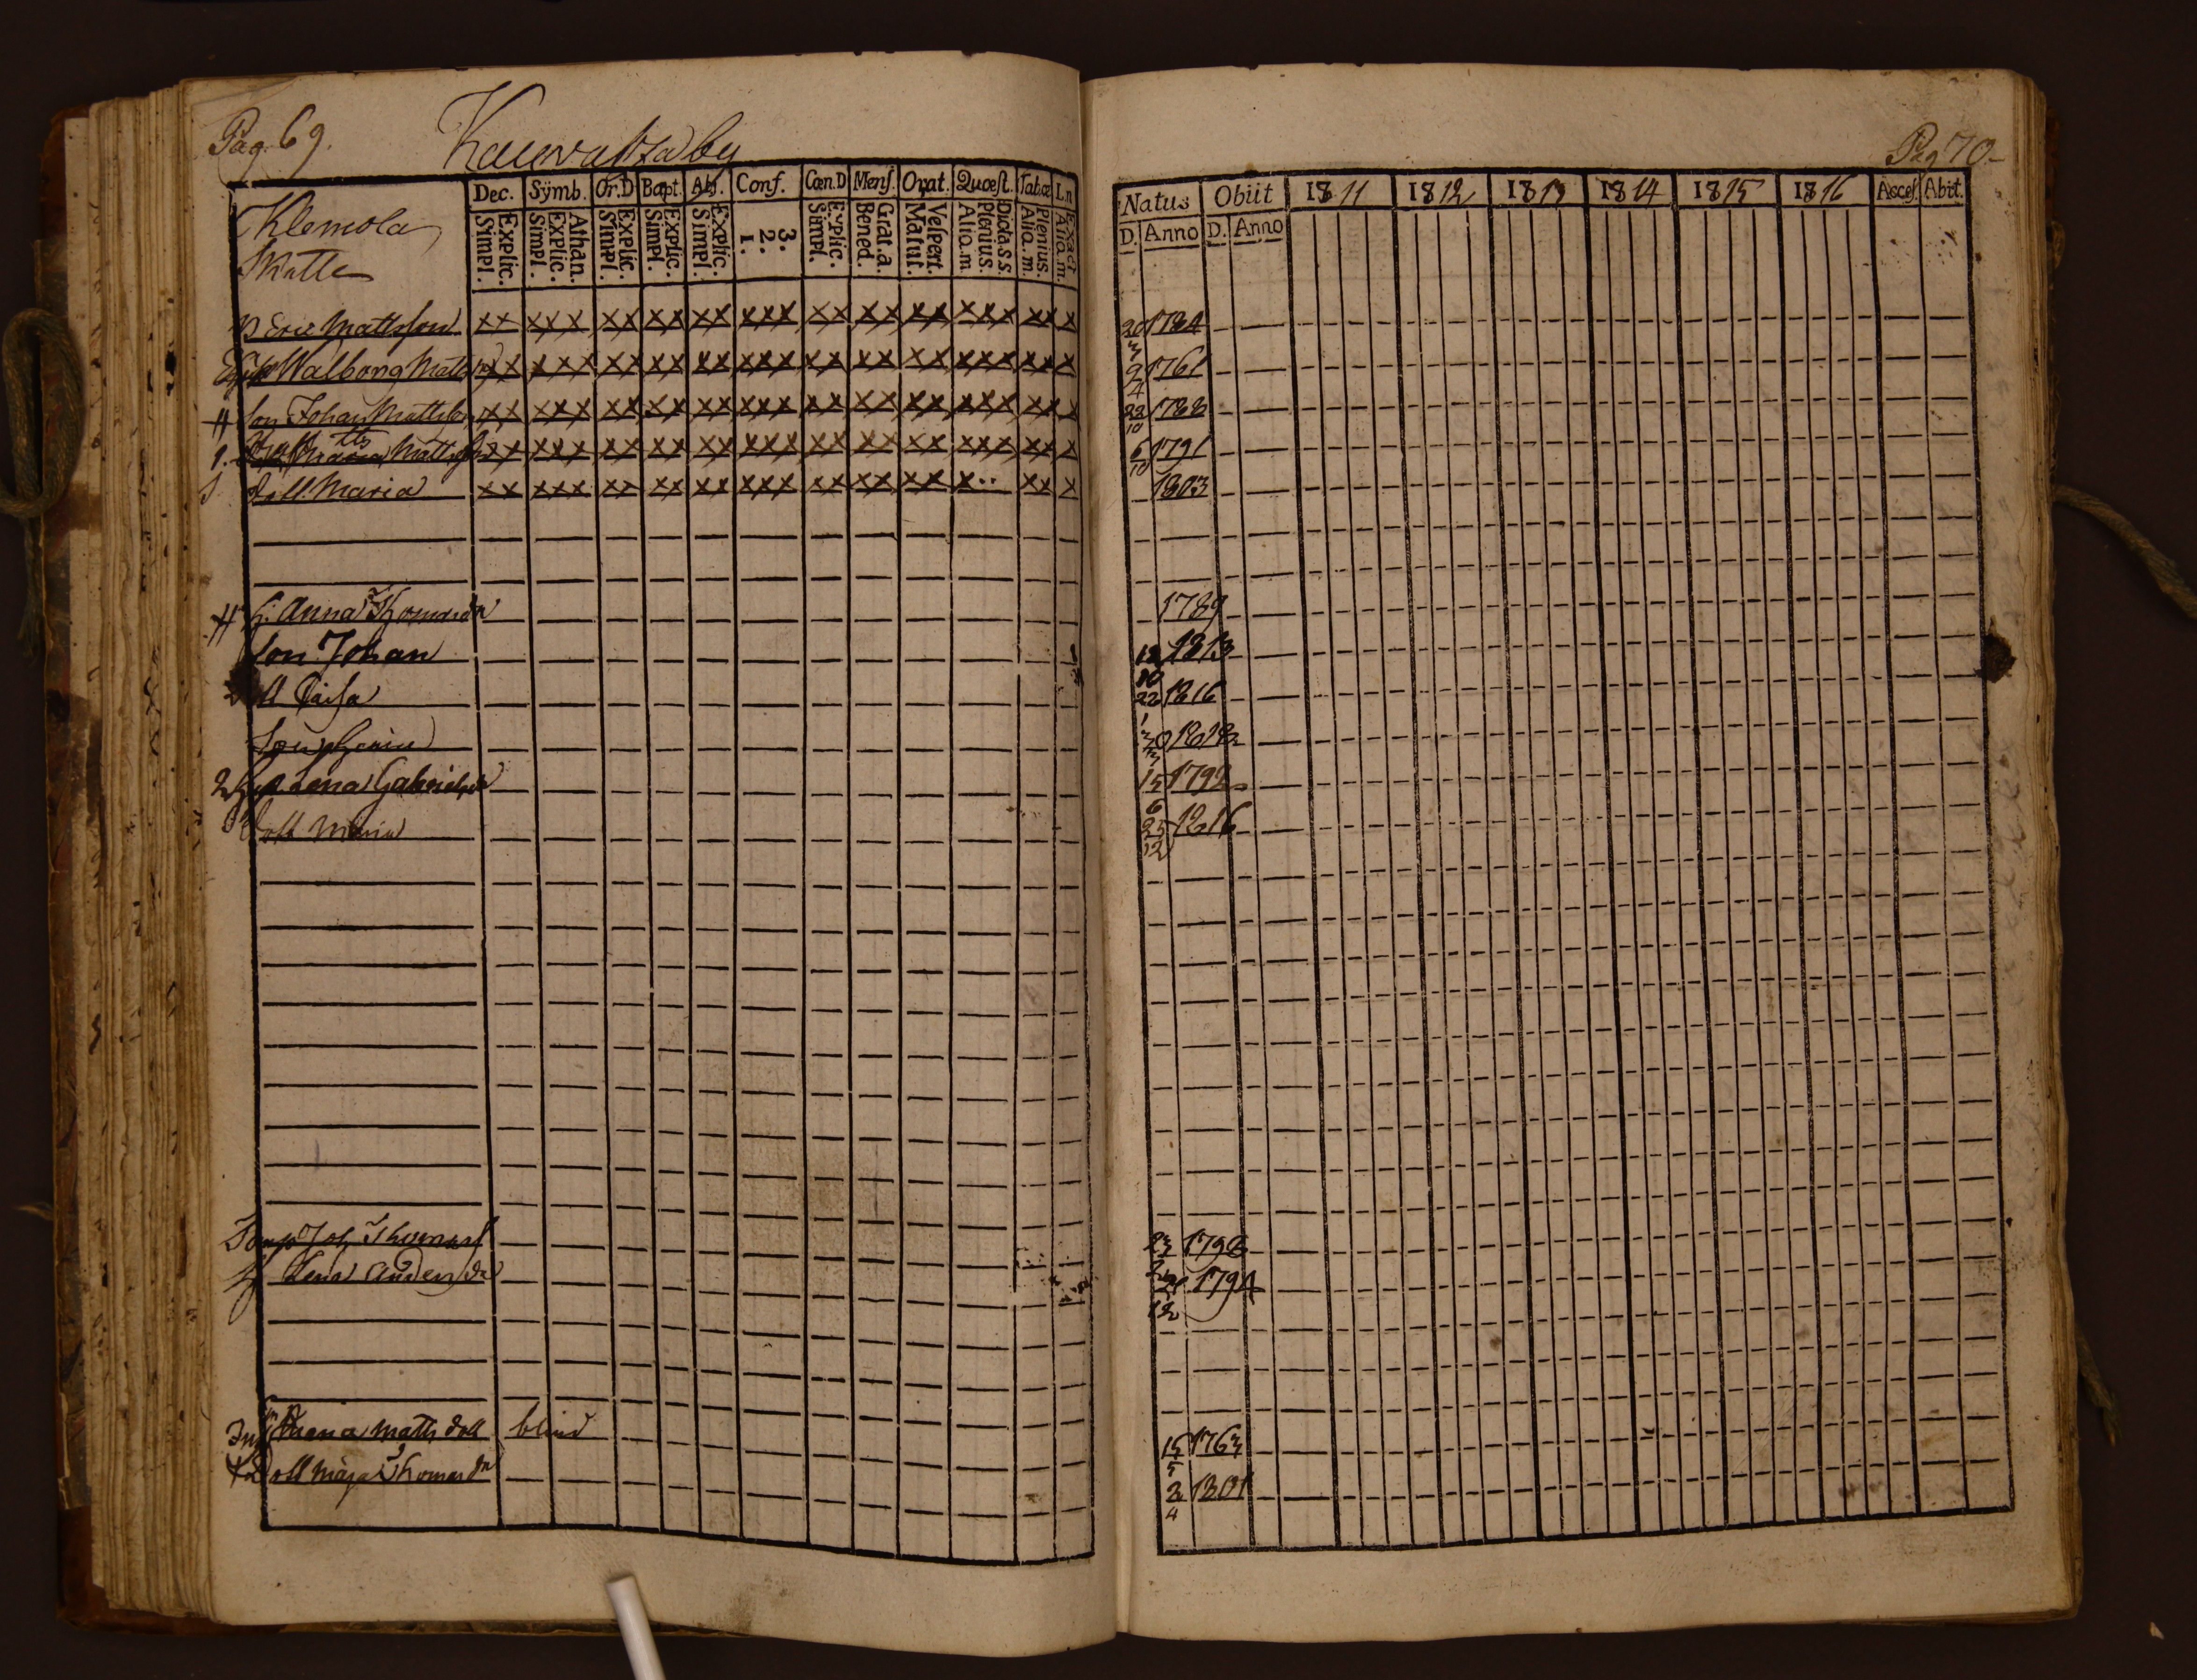 Pag. 69.
Kauvatsa by
Klemola
Skatte
Dec. Symb. Or. D Bapt. Abs. Conf. Cœn. D Mens. Orat. Quæst. Tabæ Ln
Explic. Simpl. Athan. Explic. Simpl. Explic. Simpl. Explic. Simpl. Explic. Simpl. 3. 2. 1. Explic. Simpl. Grat. a. Bened. Vespert. Matut. Dicta. s s. Plenius. Aliq. m Plenius. Aliq. m. Exact Aliq. m.
Eric Mattsson xx xxx xx xx xx xxx xx xx xx xxx xx x
Walborg Matts xx xxx xx xx xx xxx xx xx xx xxx xx x
Son Johan Mattsson xx xxx xx xx xx xxx xx xx xx xxx xx x
1. Matts xx xxx xx xx xx xxx xx xx xx xxx xx x
doll Maria xx xxx xx xx xx xxx xx xx xx x.. xx x
h. Anna Thomasdr
Son Johan
doll Caisa
Son
2 Lena Gabrielsdr
doll Maria
Joh Thomass
Lena Andersdr
Inh Mats doll blind
doll Maja Thomasdr
Pag 70
Natus Obiit 1811 1812 1813 1814 1815 1816 Acces. Abit.
D. Anno D. Anno
20/3 1784
9/4 1761
22/10 1788
6/10 1791
1803
1789
12/10 1813
22/1 1816
30/3 1818
15/6 1792
25/12 1816
23/2 1798
21/12 1794
15/5 1763
2/4 1801